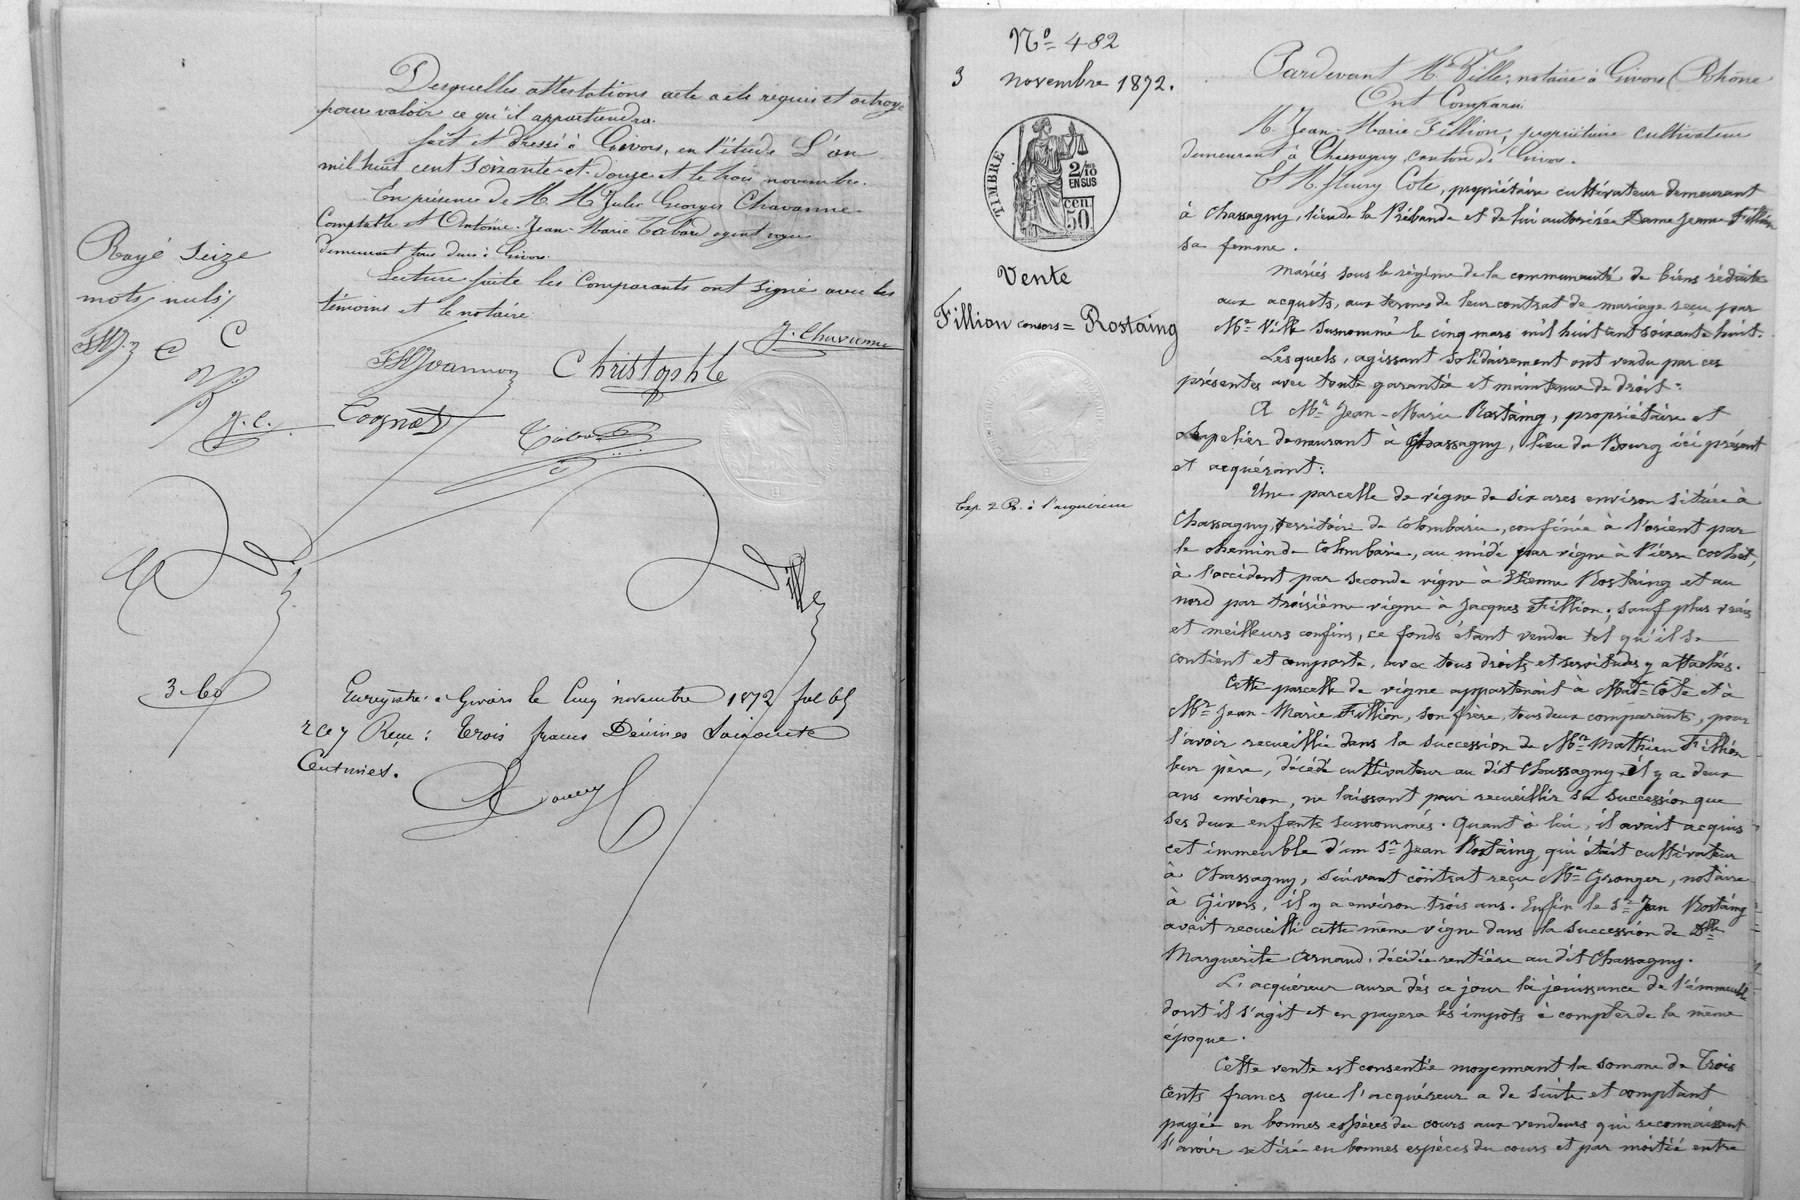 Desquelles attestations acte a été requis et octroyé
pour valoir ce qu'il appartiendra.
fait et dressé à Givors, en l'étude L'an
mil huit cent soixante-et-douze et le trois novembre.
En présence de M. M. Jules Georges Chavanne
Comptable et Antoine-Jean-Marie Tabard agent voyer
demeurant tous deux à Givors.
Lecture faite les Comparants ont signé avec les
témoins et le notaire
Rayé Seize
mots nuls
C
C
J. C.
J. Chavanne
Christophle
Cognet
Tabard
Ville
3-60
Enregistré à Givors le Cinq novembre 1872 fol 65
r c 7 Reçu : trois francs Décimes Soixante
Centimes.
Nº 482
3 novembre 1872.
TIMBRE
2/10
EN SUS
50 cen
Vente
Fillion consors = Rostaing
Exp. 2 R. à l'acquéreur
Pardevant Me Ville, notaire à Givors (Rhône
Ont Comparu
M. Jean-Marie Fillion, propriétaire cultivateur
demeurant à Chassagny, canton de Givors.
Et M. fleury Cote, propriétaire cultivateur demeurant
à Chassagny, lieu de la Prébande et de lui autorisée Dame Jeanne Fillion
sa femme.
Mariés sous le régime de la communauté de biens réduite
aux acquets, aux termes de leur contrat de mariage reçu par
Me Ville susnommé le cinq mars mil huit cent soixante huit.
Lesquels, agissant solidairement ont vendu par ces
présentes avec toute garantie et maintenue de droit :
A Mr Jean-Marie Rostaing, propriétaire et
chapelier demeurant à Chassagny, lieu du Bourg ici présent
et acquérant :
Une parcelle de vigne de six ares environ située à
Chassagny, territoire de Colombarie, confinée à l'orient par
le chemin de Colombarie, au midi par vigne à Pierre Cochet,
à l'occident par seconde vigne à Etienne Rostaing et au
nord par troisième vigne à Jacques Fillion ; sauf plus vrais
et meilleurs confins, ce fonds étant vendu tel qu'il se
contient et comporte, avec tous droits et servitudes y attachés.
Cette parcelle de vigne appartenait à Made Cote et à
Mr Jean-Marie Fillion, son frère, tous deux comparants, pour
l'avoir recueillie dans la succession de Mr Mathieu Fillion
leur père, décédé cultivateur au dit Chassagny il y a deux
ans environ, ne laissant pour recueillir sa succession que
ses deux enfants susnommés. Quant à lui, il avait acquis
cet immeuble d'un Sr Jean Rostaing, qui était cultivateur
à Chassagny, suivant contrat reçu Me Granger, notaire
à Givors, il y a environ trois ans. Enfin le Sr Jean Rostaing
avait recueilli cette même vigne dans la succession de Dlle
Marguerite Arnaud, décédée rentière au dit Chassagny.
L'acquéreur aura dès ce jour la jouissance de l'immeuble
dont il s'agit et en payera les impots à compter de la même
époque.
Cette vente est consentie moyennant la somme de Trois
Cents francs que l'acquéreur a de suite et comptant
payée en bonnes espèces du cours aux vendeurs qui reconnaissent
l'avoir retirée en bonnes espèces du cours et par moitié entre